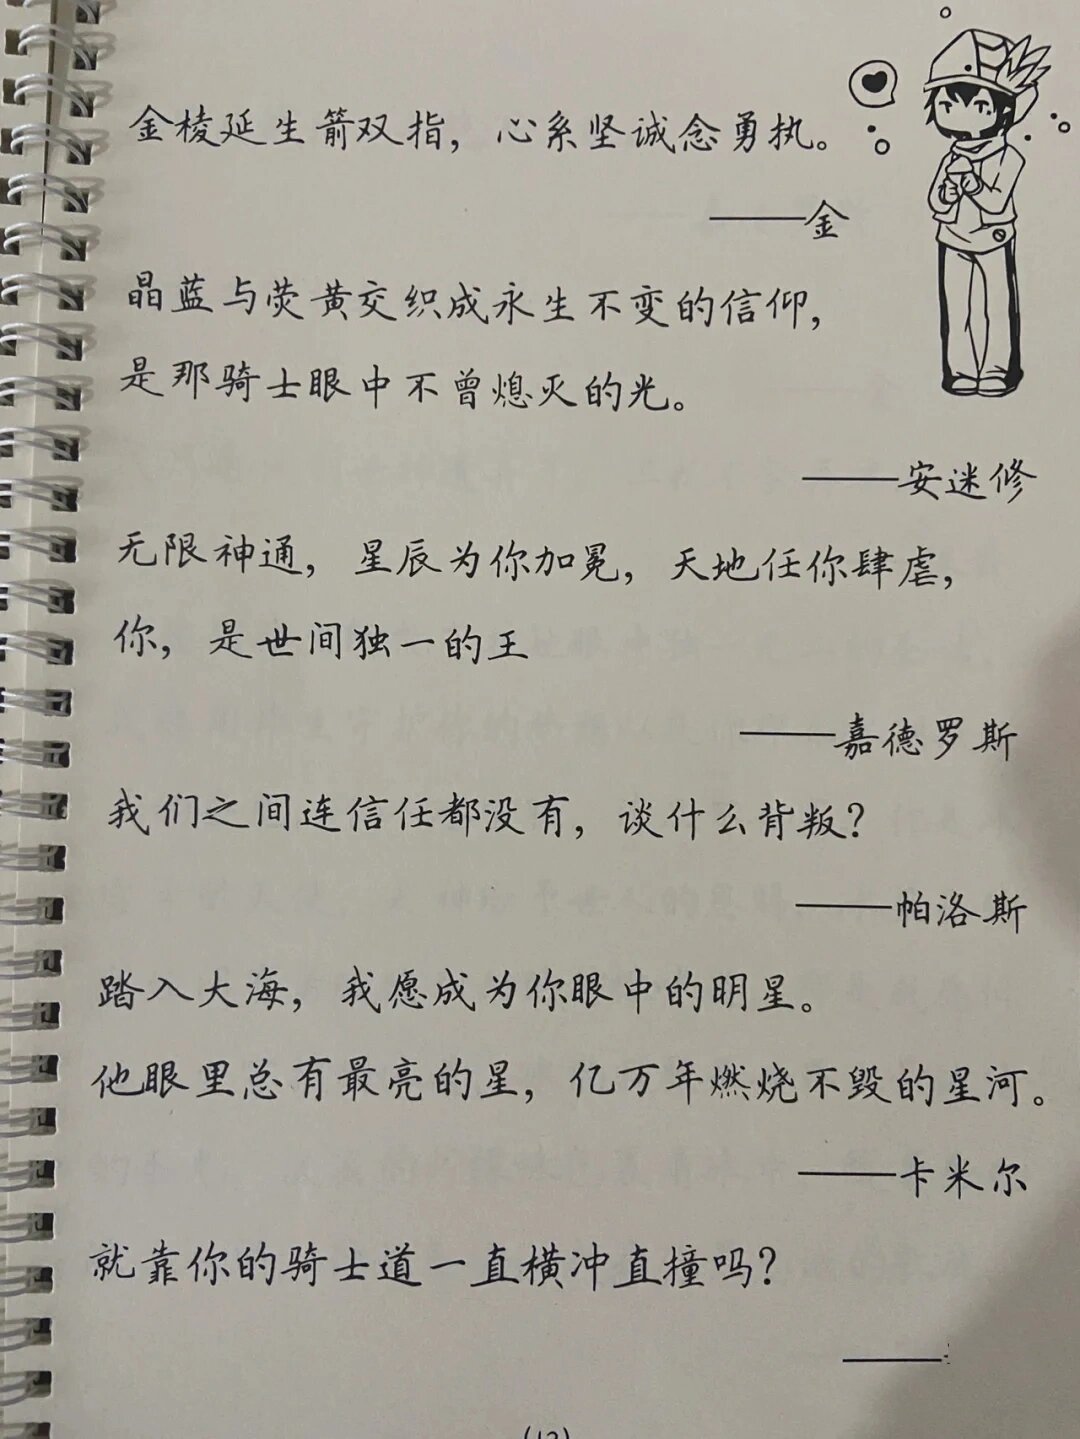 金棱延生箭双指，心系坚诚念勇执。
——金
晶蓝与荧黄交织成永生不变的信仰，
是那骑士眼中不曾熄灭的光。
——安迷修
无限神通，星辰为你加冕，天地任你肆虐，
你，是世间独一的王
——嘉德罗斯
我们之间连信任都没有，谈什么背叛？
——帕洛斯
踏入大海，我愿成为你眼中的明星。
他眼里总有最亮的星，亿万年燃烧不毁的星河。
——卡米尔
就靠你的骑士道一直横冲直撞吗？
——